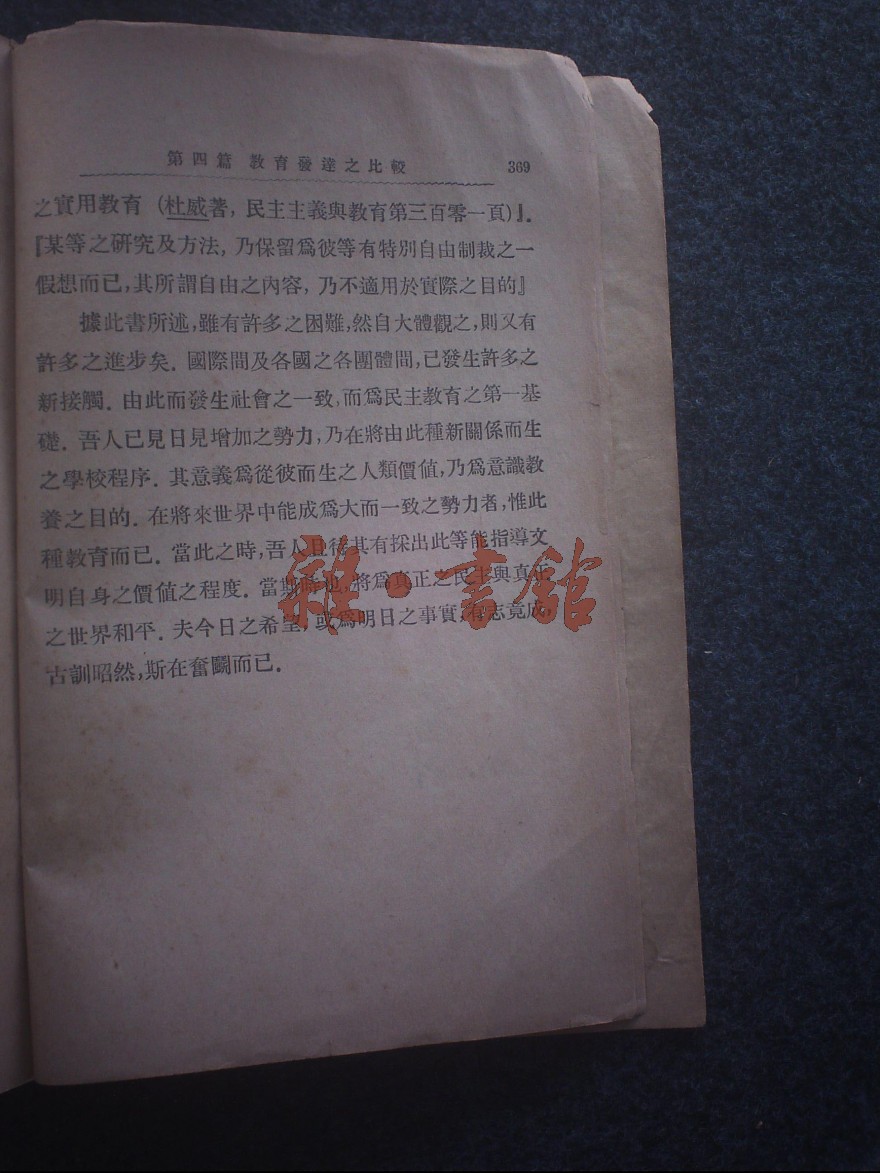 第四篇 教育發達之比較 369
之實用教育(杜威著, 民主主義與教育第三百零一頁)』.
『某等之研究及方法, 乃保留爲彼等有特別自由制裁之一
假想而已,其所謂自由之內容, 乃不適用於實際之目的』
據此書所述,雖有許多之困難,然自大體觀之,則又有
許多之進步矣. 國際間及各國之各團體間,已發生許多之
新接觸. 由此而發生社會之一致,而爲民主教育之第一基
礎. 吾人已見日見增加之勢力,乃在將由此種新關係而生
之學校程序. 其意義爲從彼而生之人類價値,乃爲意識教
養之目的. 在將來世界中能成爲大而一致之勢力者,惟此
種教育而已. 當此之時,吾人且待其有採出此等能指導文
明自身之價値之程度. 當斯時也,將爲真正之民主與真正
之世界和平. 夫今日之希望, 或爲明日之事實,有志竟成,
古訓昭然,斯在奮鬭而已.
雜·書館